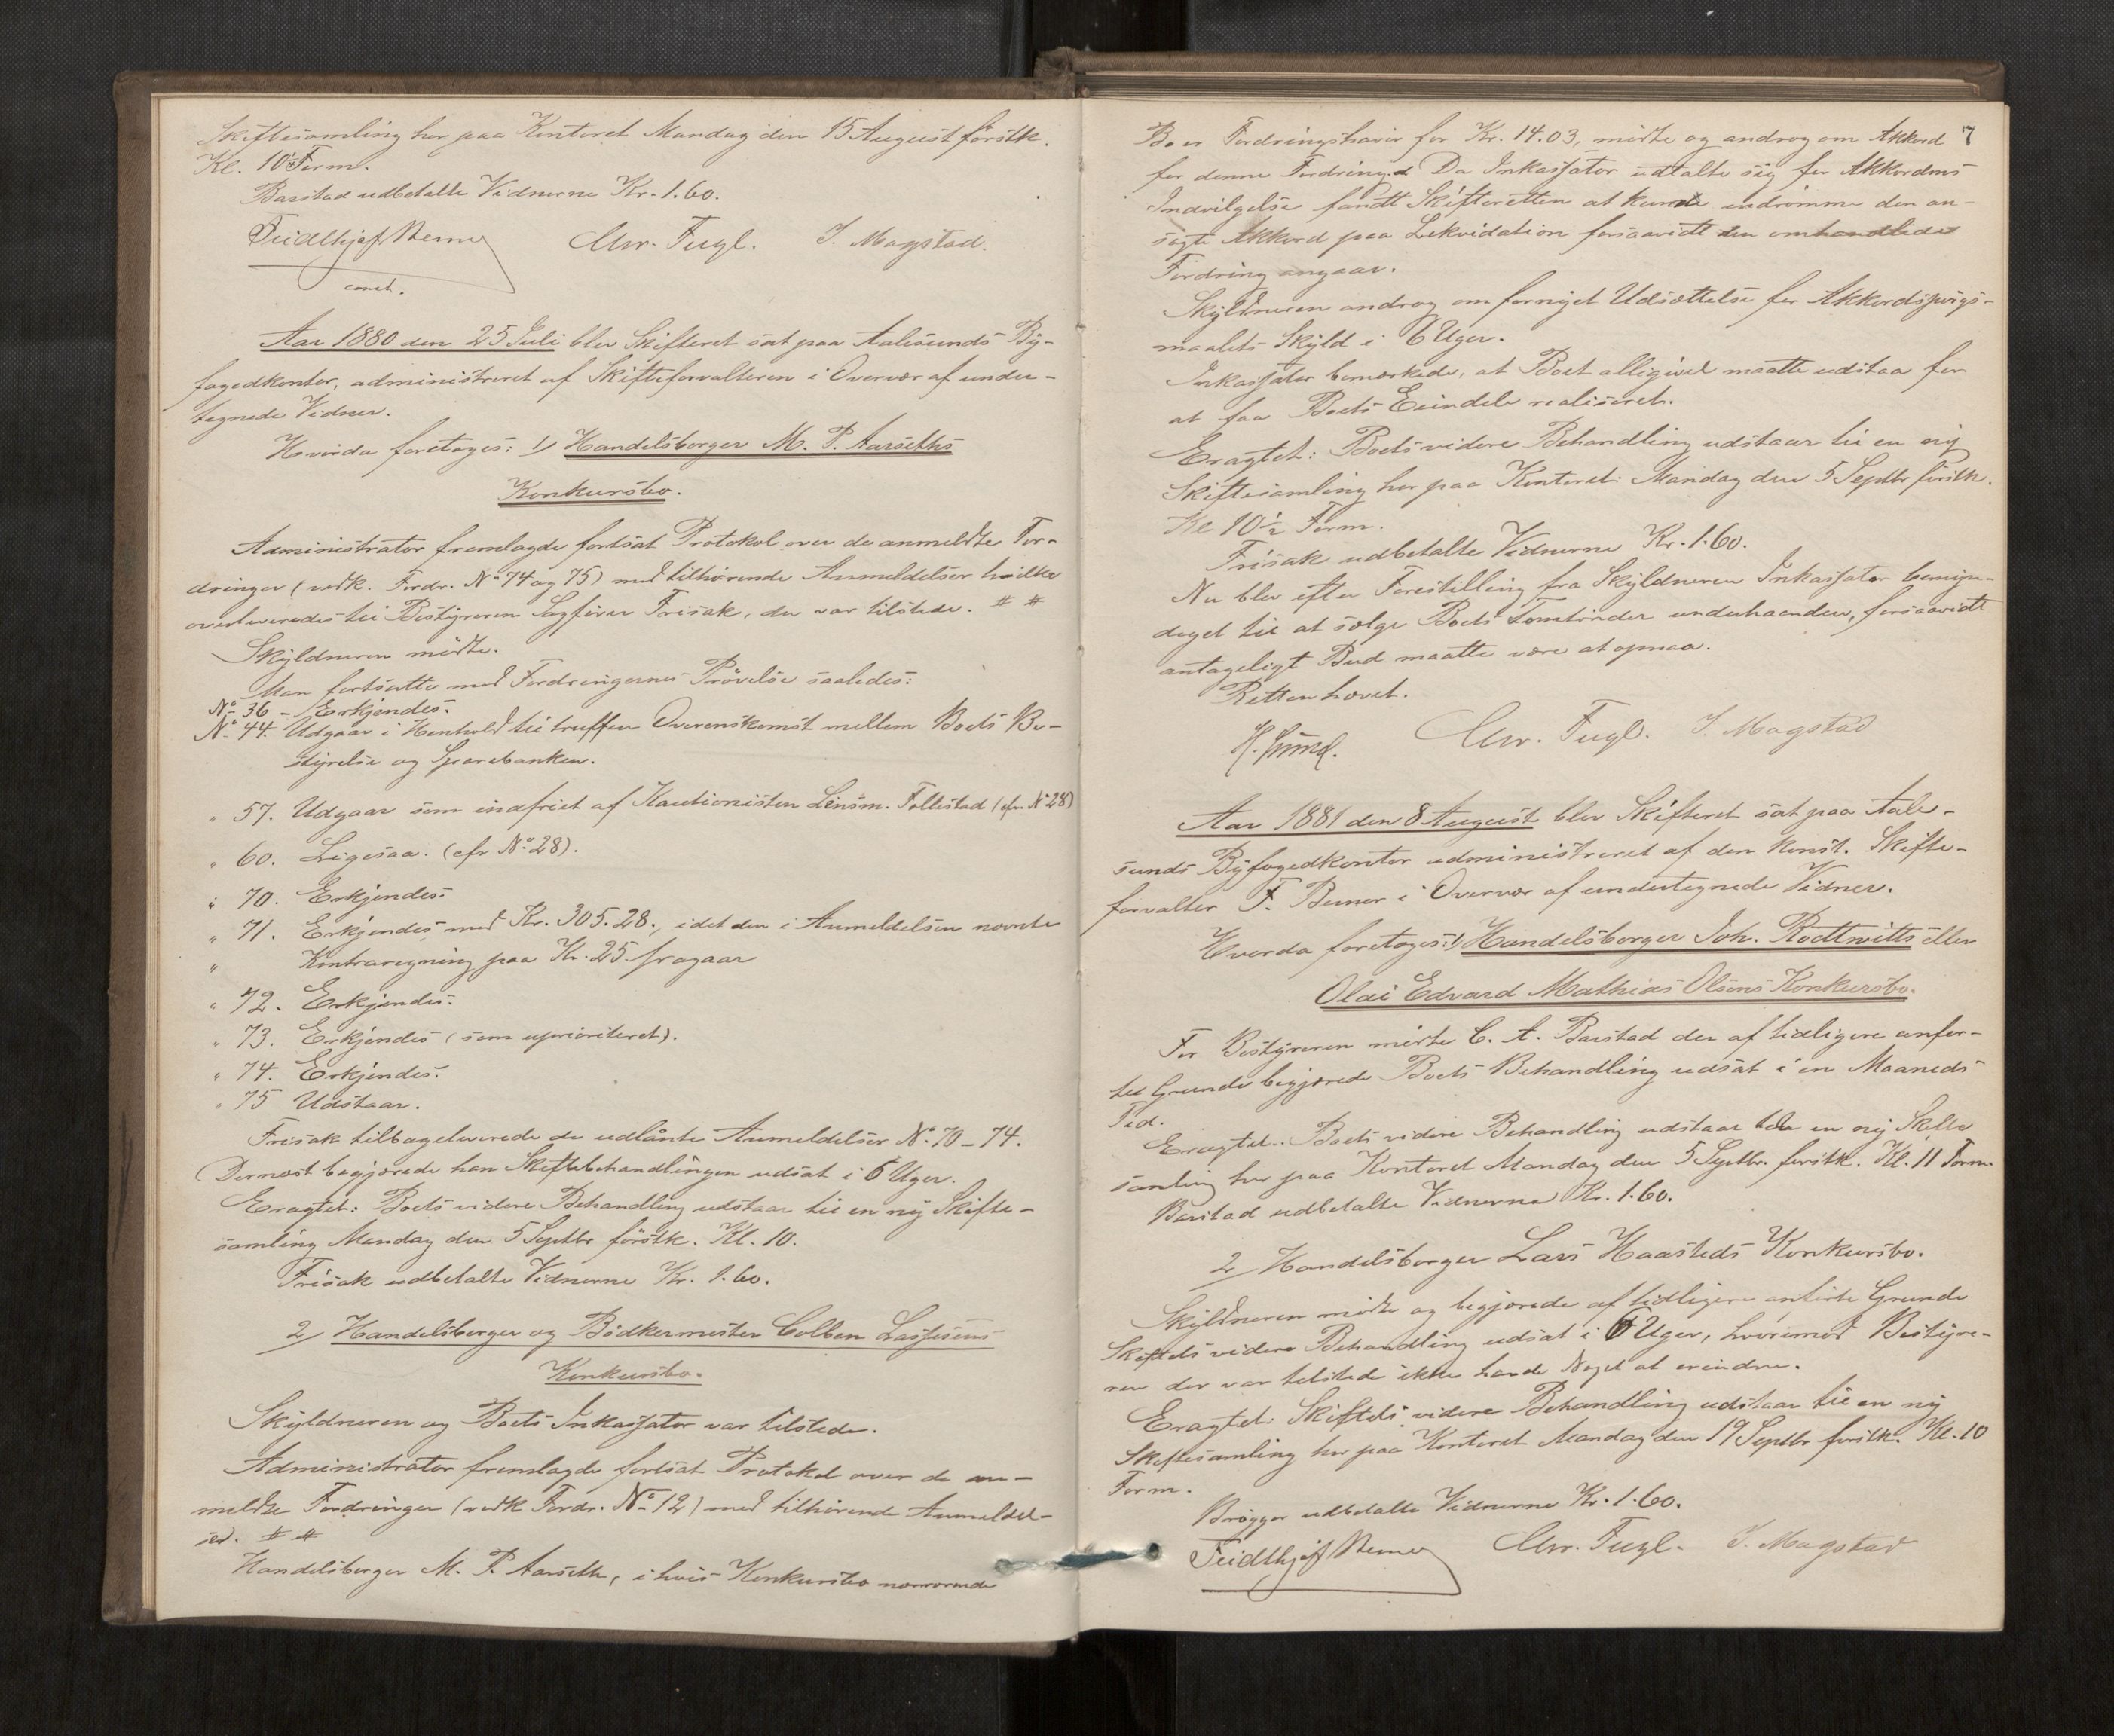 Skiftesamling her paa Kontoret Mandag den 15 August förstk.
Kl. 10½ Form.
Barstad udbetalte Vidnerne Kr. 1.60.
Fridthjof Berner Chr. Fugl. I. Magstad.
const.
Aar 1880 den 25 Juli blev Skifteret sat paa Aalesunds By-
fogedkontor, administreret af Skifteforvalteren i Overvær af under-
tegnede Vidner.
Hvorda foretoges: 1/ Handelsborger M. P. Aarseths
Konkursbo.
Administrator fremlagde fortsat Protokol over de anmeldte For-
dringer (vedk. Fordr. No 74 og 75) med tilhörende Anmeldelser hvilke
overleveredes til Bestyreren Sagförer Frisak, der var tilstede. # #
Skyldneren mödte.
Man fortsatte med Fordringernes Prövelse saaledes:
No 36 - Erkjendes.
No 44. Udgaar i Henhold til truffen Overenskomst mellem Boets Be-
styrelse og Sparebanken.
" 57. Udgaar som indfriet af Kautionisten Lensm. Follestad (cfr. No 28)
" 60. Ligesaa. (cfr No 28).
" 70. Erkjendes.
" 71. Erkjendes med Kr. 305.28., idet den i Anmeldelsen nævnte
" Kontraregning paa Kr. 25. fragaar
" 72. Erkjendes.
" 73. Erkjendes (som uprioriteret).
" 74. Erkjendes.
" 75 Udstaar.
Frisak tilbageleverede de udlånte Anmeldelser No 70-74.
Dernæst begjærede han Skiftebehandlingen udsat i 6 Uger.
Eragtet: Boets videre Behandling udstaar til en ny Skifte-
samling Mandag den 5 Septbr förstk. Kl. 10.
Frisak udbetalte Vidnerne Kr. 1.60.
2/ Handelsborger og Bödkermester Colben Lassesens
Konkursbo.
Skyldneren og Boets Inkassator var tilstede.
Administrator fremlagde fortsat Protokol over de an-
meldte Fordringer (vedk Fordr. No 12) med tilhörende Anmeldel-
sed. # #
Handelsborger M. P. Aarseth, i hvis Konkursbo nærværende
7
Bo er Fordringshaver for Kr. 14.03, mödte og androg om Akkord
for denne Fordring. Da Inkassator udtalte sig for Akkordens
Indvilgelse fandt Skifteretten at kunne indrömme den an-
sögte Akkord paa Likvidation forsaavidt den omhandlede
Fordring angaar.
Skyldneren androg om fornyet Udsættelse for Akkordspörgs-
maalets Skyld i 6 Uger.
Inkassator bemærkede, at Boet alligevel maatte udstaa for
at faa Boets Eiendele realiseret.
Eragtet: Boets videre Behandling udstaar til en ny
Skiftesamling her paa Kontoret Mandag den 5 Septbr förstk.
Kl 10½ Form.
Frisak udbetalte Vidnerne Kr. 1.60.
Nu blev efter Forestilling fra Skyldneren Inkassator bemyn-
diget til at sælge Boets Tomtönder underhaanden, forsaavidt
antageligt Bud maatte være at opnaa.
Retten hævet.
Chr. Fugl. I. Magstad
Aar 1881 den 8 August blev Skifteret sat paa Aale-
sunds Byfogedkontor administreret af den konst. Skifte-
forvalter F. Berner i Overvær af undertegnede Vidner.
Hvorda foretoges: 1/ Handelsborger Joh. Rödtwitts eller
Olai Edvard Mathias Olsens Konkursbo.
For Bestyreren mödte C. A. Barstad der af tidligere anför-
te Grunde begjærede Boets Behandling udsat i en Maaneds
Tid.
Eragtet: Boets videre Behandling udstaar til en ny Skifte
samling her paa Kontoret Mandag den 5 Septbr. förstk. Kl. 11 Form.
Barstad udbetalte Vidnerne Kr. 1.60.
2/ Handelsborger Lars Haasteds Konkursbo.
Skyldneren mödte og begjærede af tidligere anförte Grunde
Skiftets videre Behandling udsat i 6 Uger, hvorimod Bestyre-
ren der var tilstede ikke havde Noget at erindre.
Eragtet: Skiftets videre Behandling udstaar til en ny
Skiftesamling her paa Kontoret Mandag den 19 Septbr förstk. Kl. 10
Form.
Brögger udbetalte Vidnerne Kr. 1.60.
Fridthjof Berner Chr. Fugl. I. Magstad